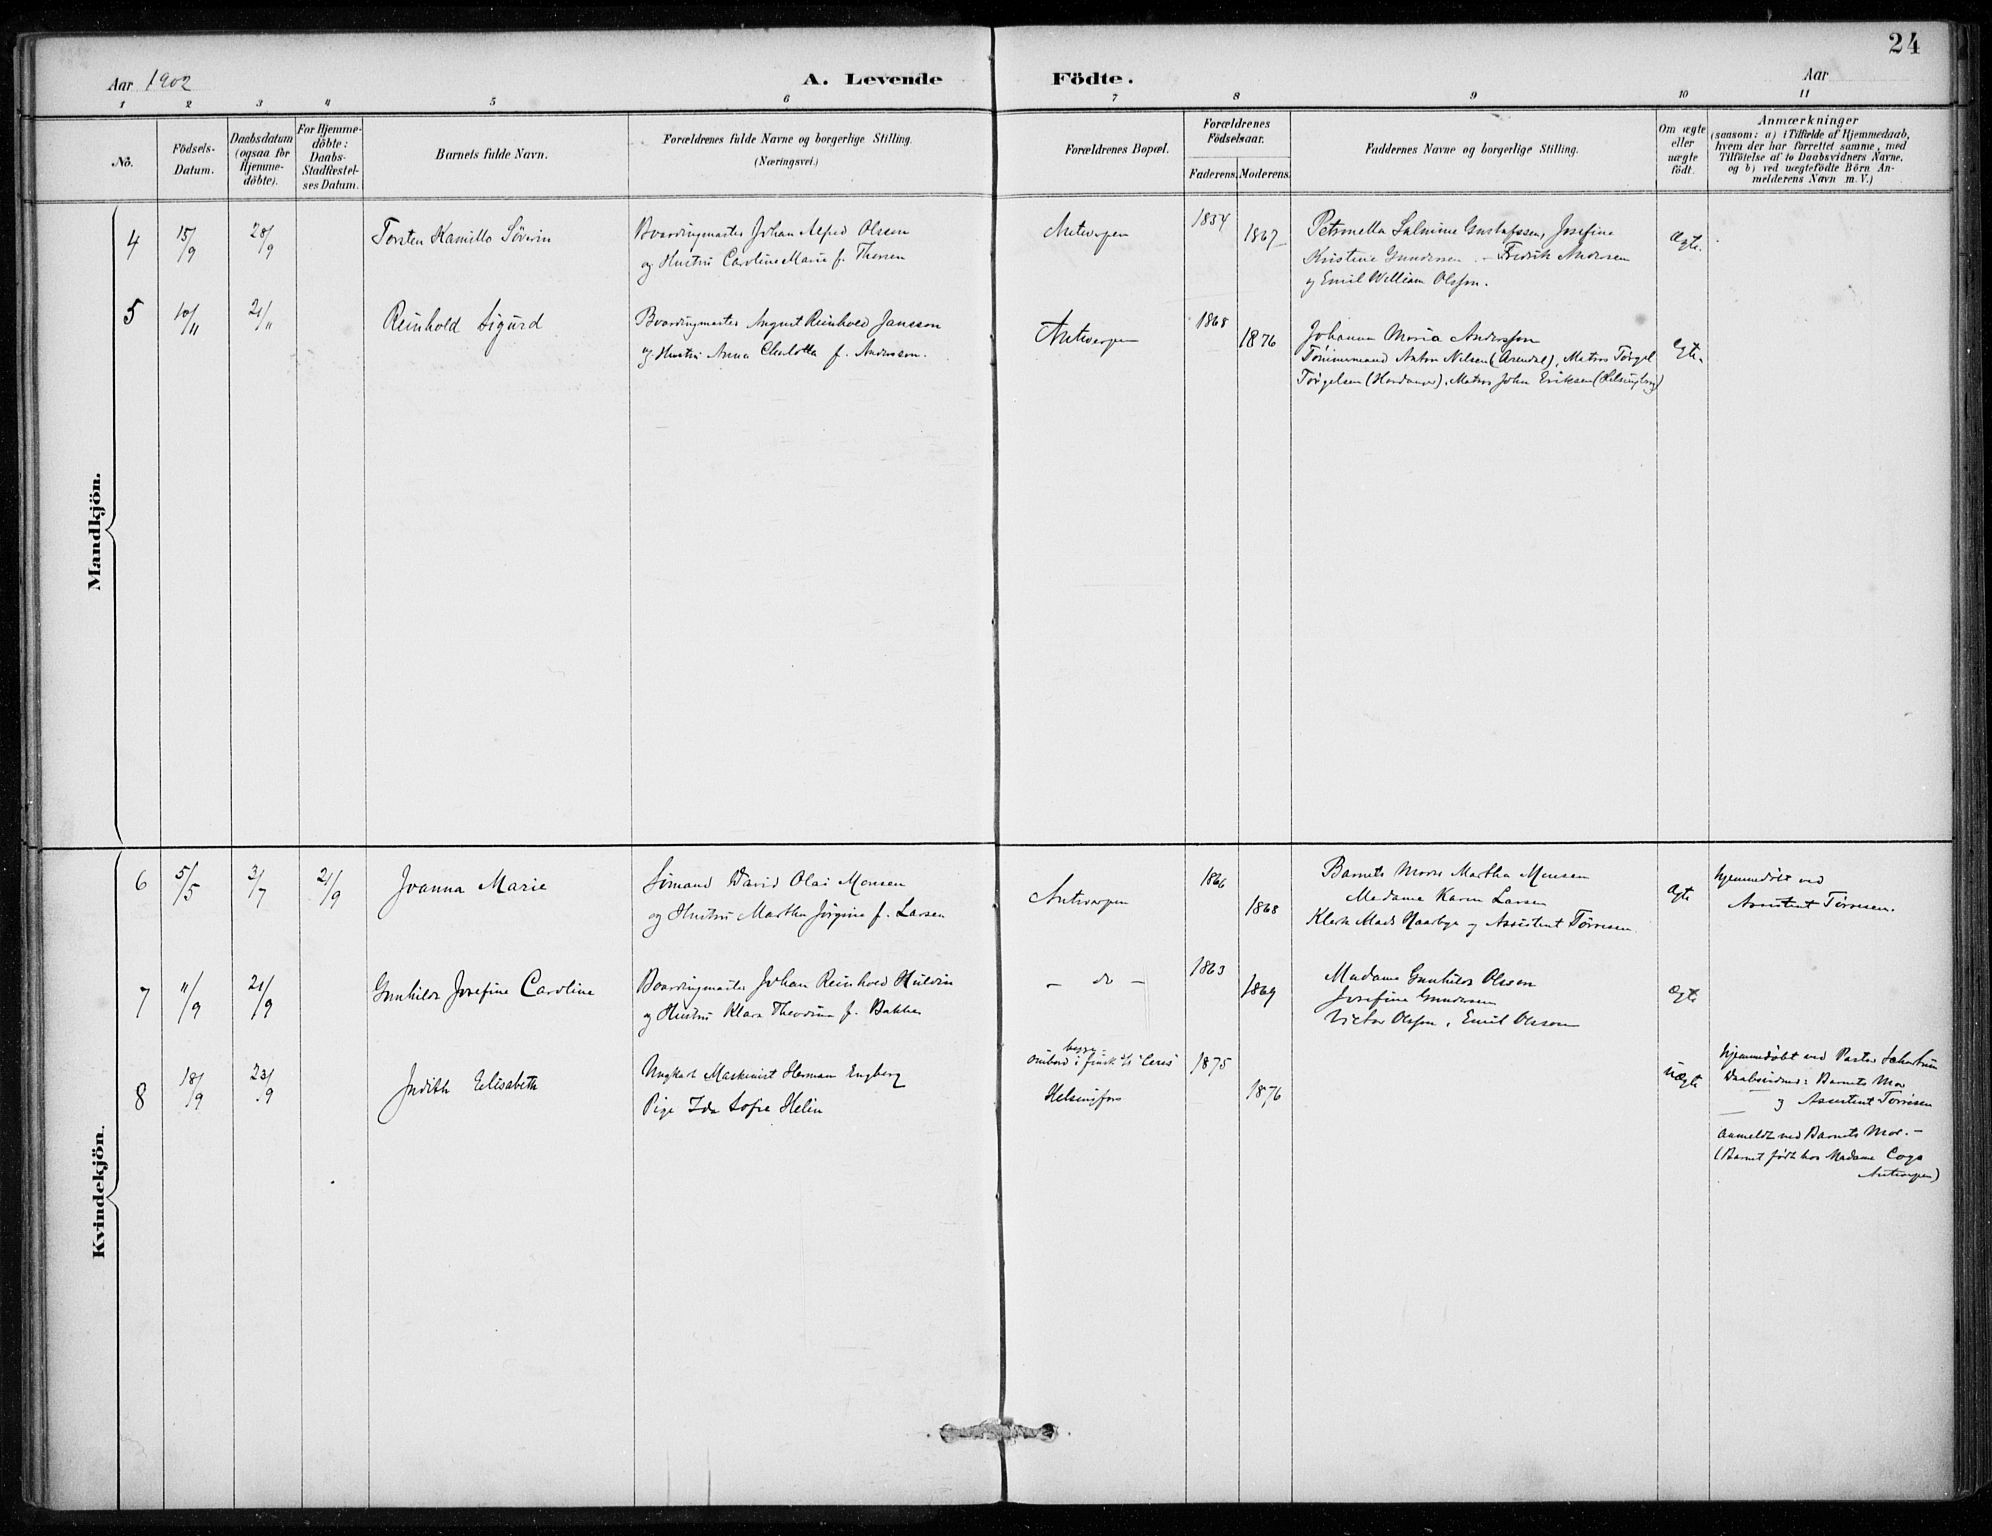 24
Aar 1902
A. Levende
Födte.
Aar
1 2 3 4 5 6 7 8 9 10 11
No.
Födsels-
Datum.
Daabsdatum
(ogsaa for
Hjemme-
döbte).
For Hjemme-
döbte:
Daabs-
Stadfæstel-
ses Datum.
Barnets fulde Navn.
Forældrenes fulde Navne og borgerlige Stilling.
(Næringsvei.)
Forældrenes Bopæl.
Forældrenes
Födselsaar.
Faderens. Moderens.
Faddernes Navne og borgerlige Stilling.
Om ægte
eller
uægte
födt.
Anmærkninger
(saasom: a) i Tilfælde af Hjemmedaab,
hvem der har forrettet samme, med
Tilföielse af to Daabsvidners Navne,
og b) ved uægtefödte Börn An-
melderens Navn m. V.)
Mandkjön.
4 15/9 28/9 Torsten Kamillo Söverin
Boardingmaster Johan Alfred Olsson
og Hustru Caroline Marie f. Thorsen
Antwerpen 1854 1867
Petronella Salmine Gustafsson, Josefine
Kristine Gundersen - Fredrik Andersen
og Emil William Olsson.
Ægte.
5 10/11 21/11 Reinhold Sigurd
Boardingmaster August Reinhold Jansson
og Hustru Anna Charlotta f. Andersson.
Antwerpen 1868 1876
Johanna Maria Andersson
Tømmermand Anton Nilsen (Arendal), Matros Törgel
Törgelsen (Hardanger), Matros John Eriksen (Helsingborg)
Ægte.
Kvindekjön.
6 5/5 3/7 21/9 Joanna Marie
Sömand David Olai Monsen
og Hustru Martha Jörgine f. Larsen
Antwerpen 1866 1868
Barnets Mor Martha Monsen
Madame Karen Larsen
Klerk Mads Haarbye og Assistent Törresen.
Ægte
hjemmedöbt ved
Assistent Törresen.
7 11/9 21/9 Gunhilda Josefine Caroline
Boardingmaster Johan Reinhold Huldin
og Hustru Klara Theodina f. Bakken
- do - 1863 1869
Madame Gunhilda Olsson
Josefine Gundersen
Victor Olsson, Emil Olsson
Ægte
8 18/9 23/9 Judith Elisabeth
Ungkarl Maskinist Herman Engberg
Pige Ida Sofie Helin
begge
ombord i finsk s/s "Ceres"
Helsingfors
1875 1876
Uægte
hjemmedöbt ved Pastor
Daabsvidner: Barnets Mor
og Assistent Torresen
anmeldt ved Barnets Mor. -
(Barnet födt hos Madame
Antwerpen)